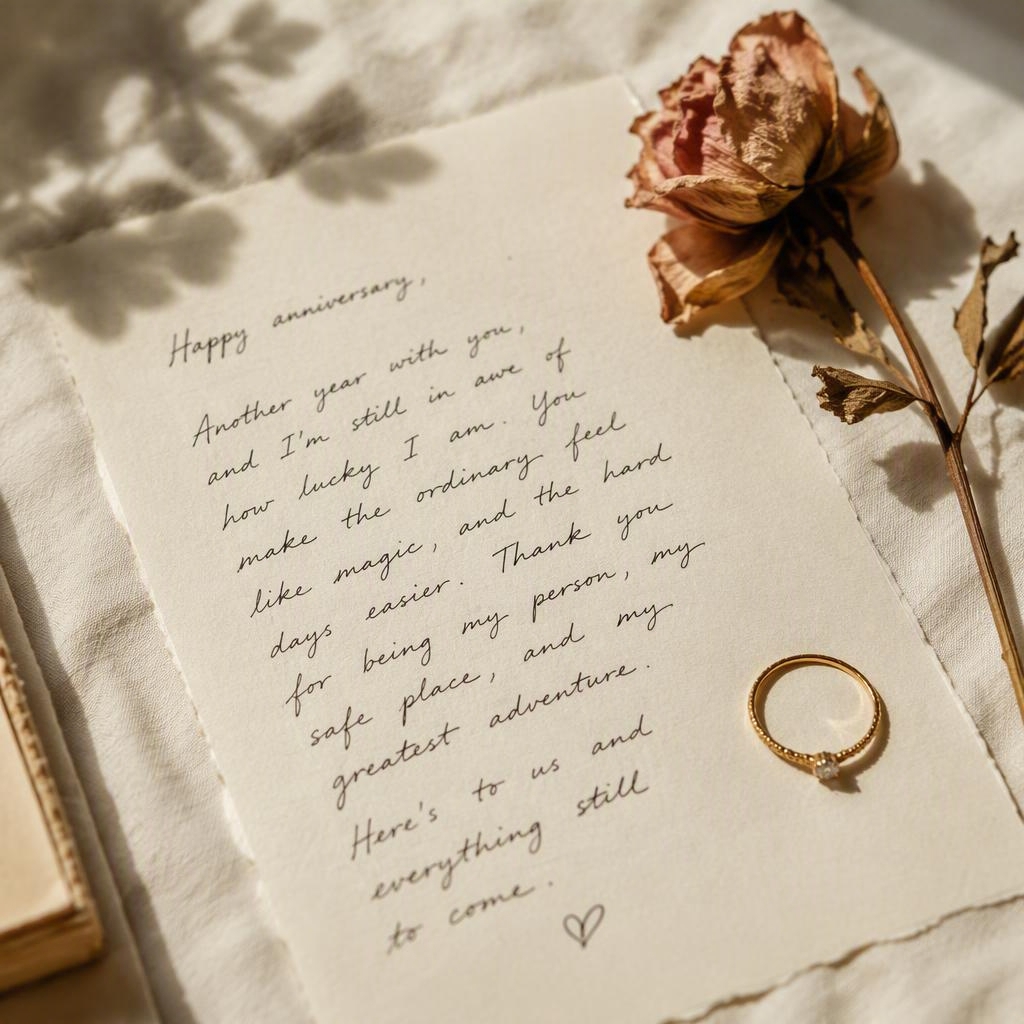 Happy anniversary,
Another year with you,
and I'm still in awe of
how lucky I am. You
make the ordinary feel
like magic, and the hard
days easier. Thank you
for being my person, my
safe place, and my
greatest adventure.
Here's to us and
everything still
to come.